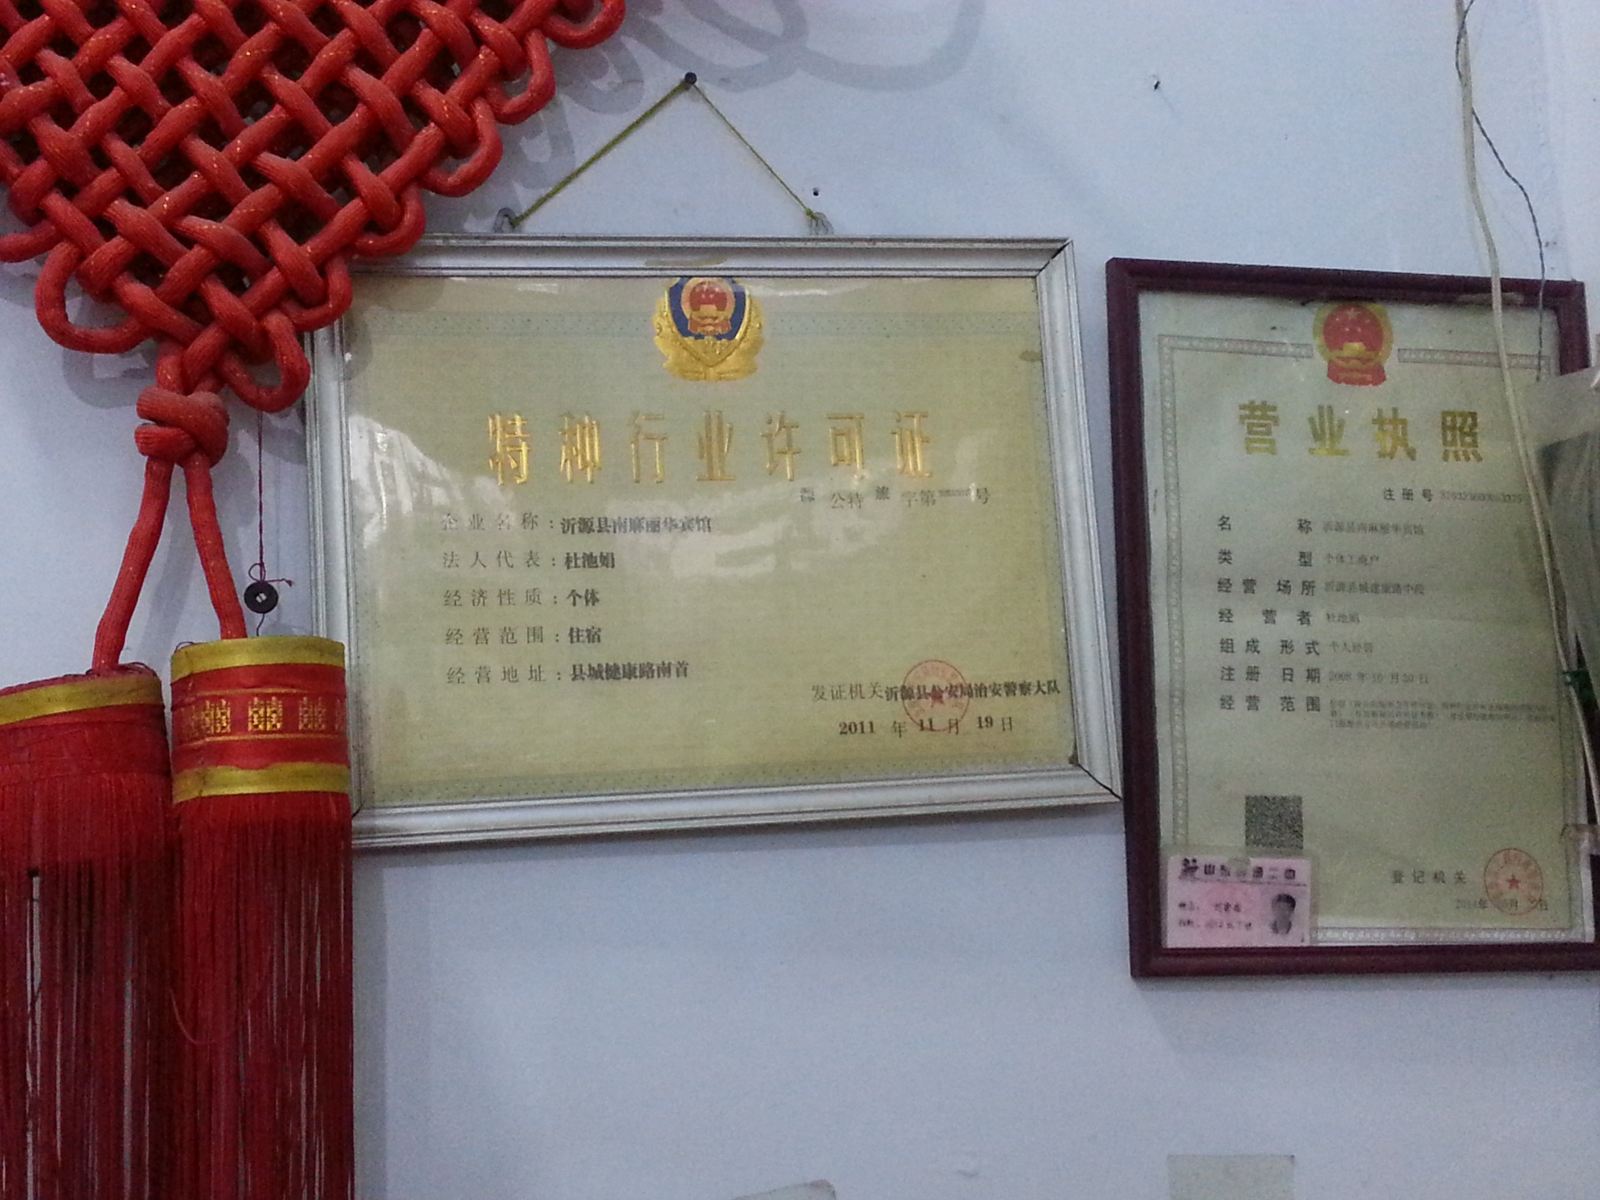 特种行业许可证
源 公特 旅 字第 号
企业名称：沂源县南麻丽华宾馆
法人代表：杜池娟
经济性质：个体
经营范围：住宿
经营地址：县城健康路南首
发证机关 沂源县公安局治安警察大队
2011 年 11 月 19 日
营业执照
注册号
名 称 沂源县南麻丽华宾馆
类 型 个体工商户
经营场所 沂源县城健康路中段
经营者 杜池娟
组成形式 个人经营
注册日期 2008年10月30日
经营范围
登记机关
2014年